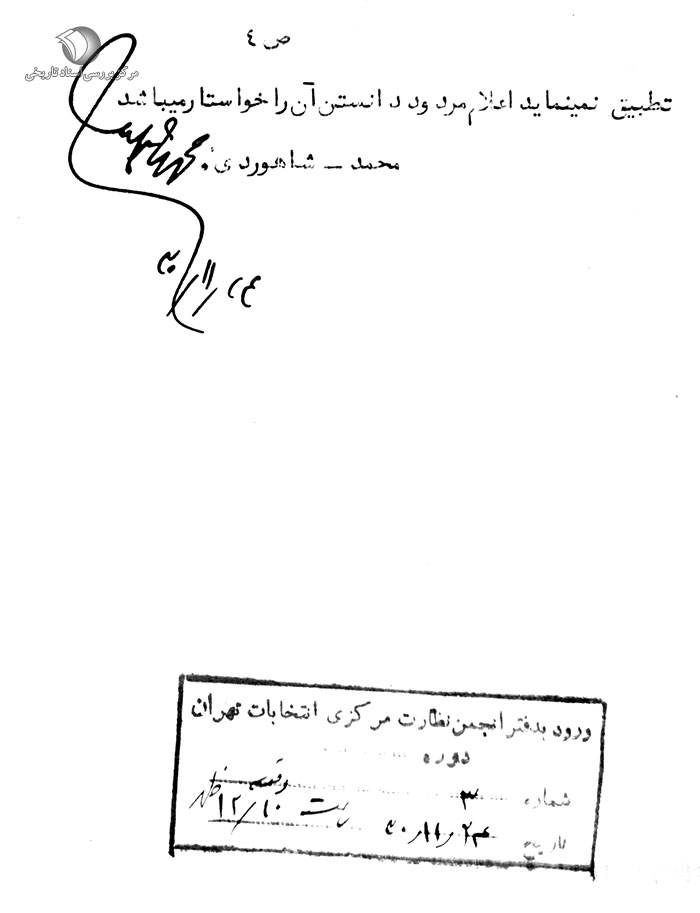 ص ٤
مرکز بررسی اسناد تاریخی
تطبیق نمینماید اعلام مردود دانستن آن را خواستار میباشد
محمد ــ شاهوردی
۳۰/۱۱/۲٤
ورود بدفتر انجمن نظارت مرکزی انتخابات تهران
دوره
شماره ۳
تاریخ ۲۴ ر ۱۱ ر ۳۰ ساعت ۱۲/۱۰ ظهر